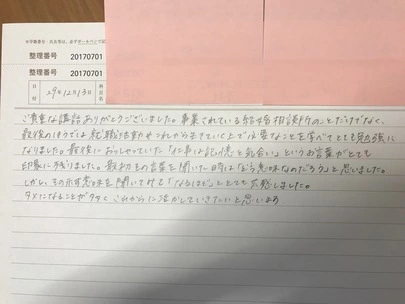 ※学籍番号・氏名等は、必ずボールペンで記
整理番号 20170701
整理番号 20170701
日付 29年12月13日
ご貴重な講話ありがとうございました。事業されている結婚相談所のことだけでなく、
最後のほうでは就職活動やこれから生きていく上で必要なことを学べてとても勉強に
なりました。最後におっしゃっていた「仕事は記憶と気合い」というお言葉がとても
印象に残りました。最初その言葉を聞いた時は「どう意味なのだろう」と思いました。
しかし、その示す意味を聞いてみて「なるほど」ととても共感しました。
タメになることが多々 これからに活かしていきたいと思います